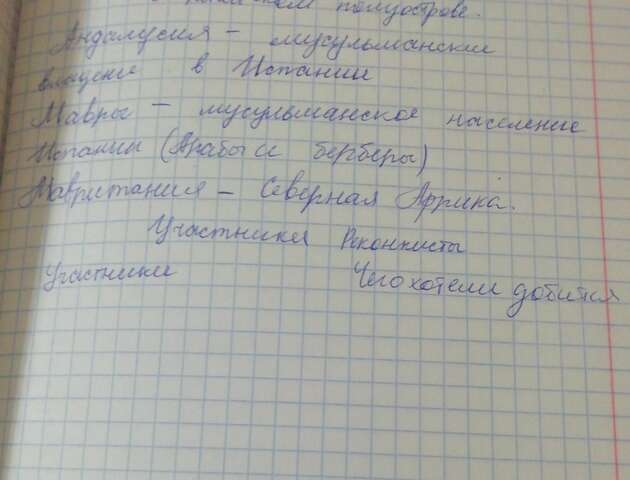 полуострове.
Андалусия – мусульманские
владение в Испании
Мавры – мусульманское население
Испании (Арабы и берберы)
Мавритания – Северная Аррика.
Участники Реконкисты
Участники Чего хотели добится